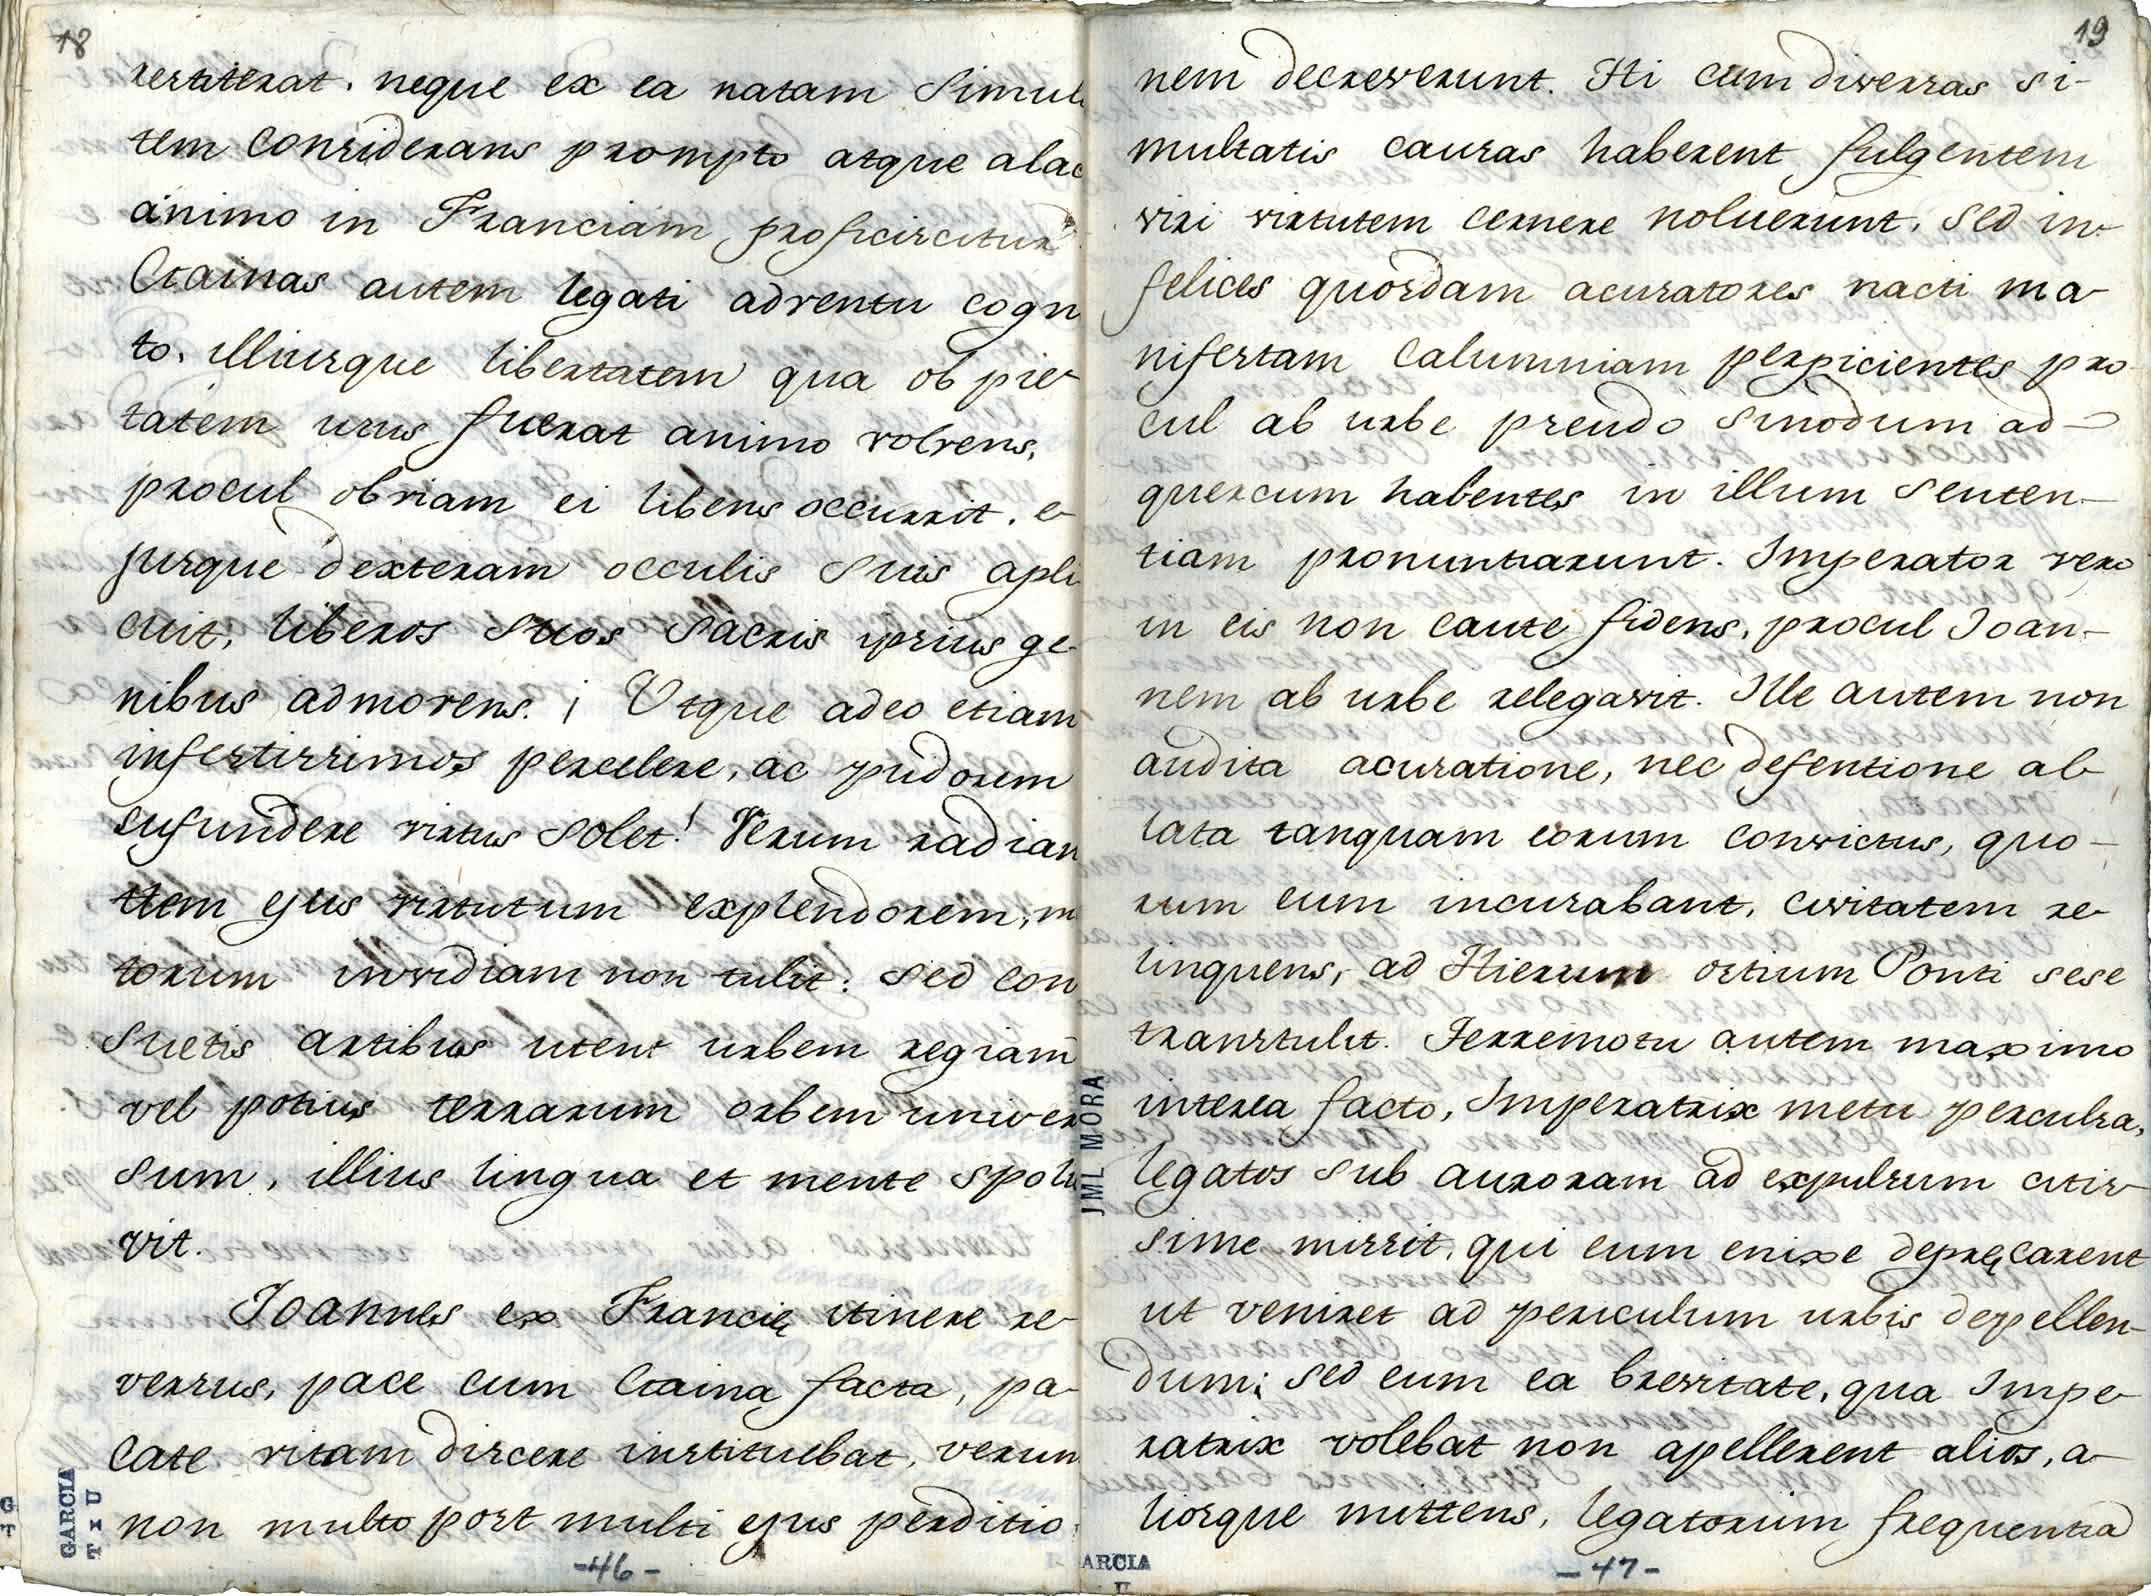 18
restiterat. neque ex ea natam Simul
tem considerans prompto atque alac
animo in Franciam proficiscitur
Ctainas autem legati adventu cogn
to. illiusque libertatem qua ob pie
tatem usus fuerat animo volvens,
procul obviam ei libens occurrit. e
jusque dexteram occulis Suis apli
cuit, liberos Suos Sacris ipsius ge
nibus admovens. ¡ Utque adeo etiam
infestissimos percelere, ac pudorem
sufundere virtus Solet! Verum radian
tem ejus virtutum explendorem, m
torum invidiam non tulit: Sed con
Suetis artibus utens urbem regiam
vel potius terrarum orbem univer
Sum, illius lingua et mente Spolia
vit.
Joannes ex Francię itinere re
versus, pace cum Ctaina facta, pa-
cate vitam discere instituebat, verum
non multo post multi ejus perditio
-46-
GARCIA
T x U
G
T
19
nem decreverunt. Hi cum diversas si-
multatis causas haberent fulgentem
viri virtutem cernere noluerunt. Sed in
felices quosdam acusatores nacti ma
nifestam Calumniam perpicientes pro
cul ab urbe pseudo Sinodum ad
quercum habentes in illum Senten-
tiam pronuntiarunt. Imperator vero
in eis non caute fidens, procul Joan-
nem ab urbe relegavit. Ille autem non
audita acusatione, nec defentione ab
lata tanquam eorum convictus, quo-
rum eum incusabant, civitatem re
linquens, ad Hierum ostium Ponti sese
transtulit. Terremotu autem maximo
interea facto, Imperatrix metu perculsa,
legatos Sub auroram ad expulsum citis
sime missit, qui eum enixe depręcarent
ut veniret ad periculum urbis depellen-
dum; Sed eum ea brevitate, qua Impe
ratrix volebat non apellerent alios, a
liosque mittens, legatorum frequentia
-47-
JML MORA
ARCIA